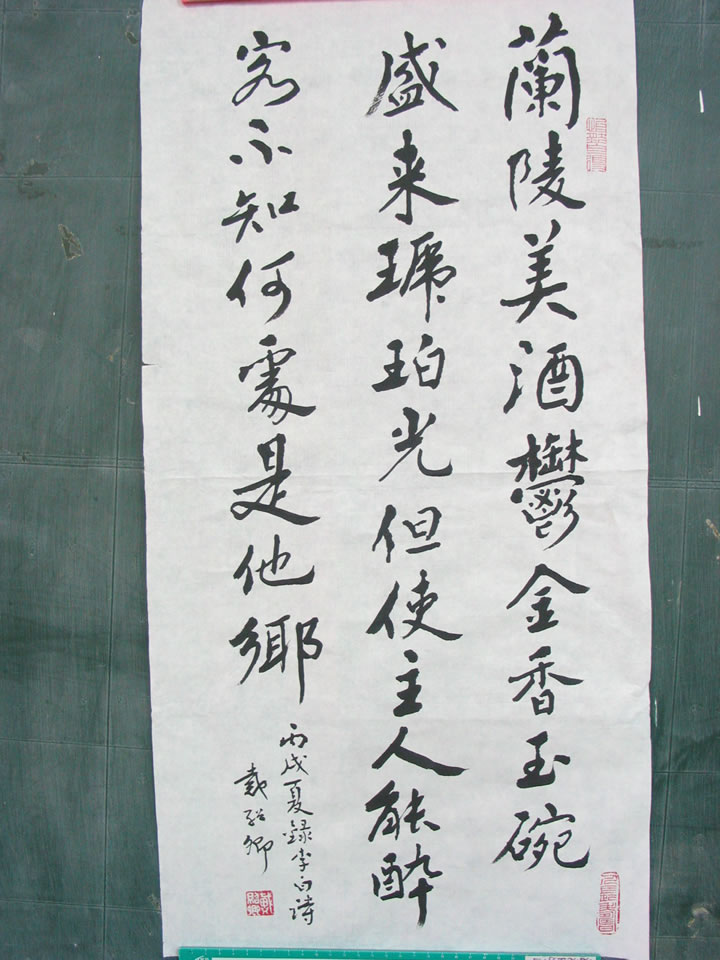 蘭陵美酒鬱金香玉碗
盛来琥珀光但使主人能醉
客不知何處是他鄉
丙戌夏録李白詩
戴绍卿